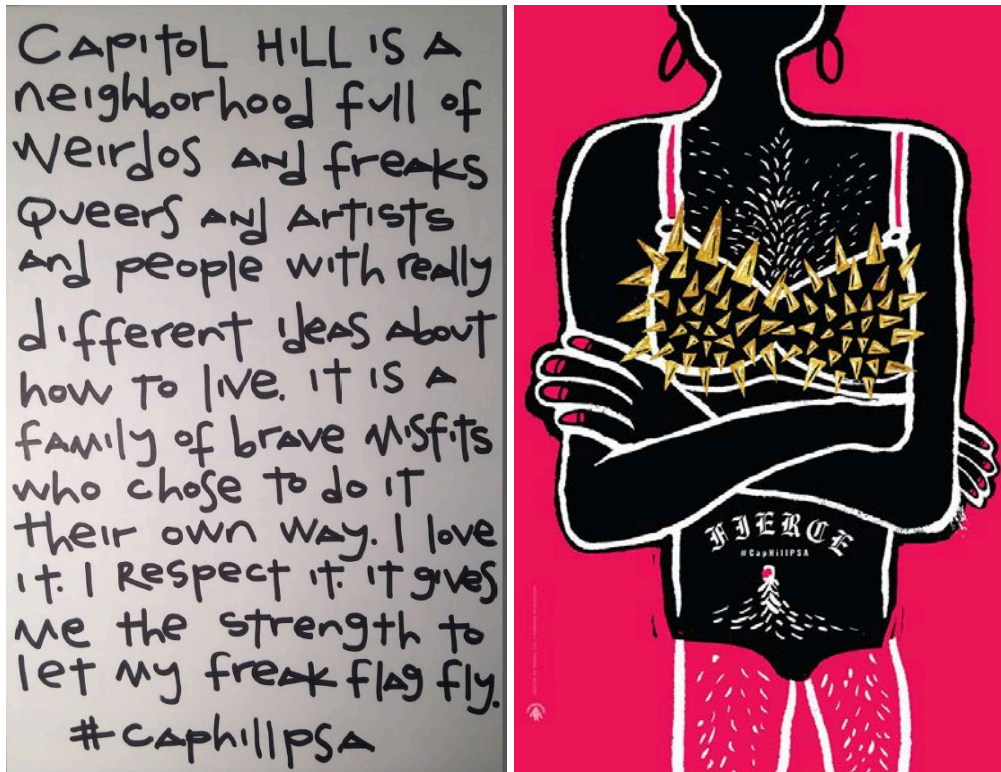 CAPITOL HILL IS A
neighborhood full of
Weirdos AND freaks
Queers AND ARTISTS
AND people with really
different ideas about
how TO live. IT IS A
FAMILY of brave Misfits
who chose to do it
their own way. I love
it. I Respect it. it gives
me the strength to
let my freak flag fly.
#caphillpsa
FIERCE
#CapHillPSA